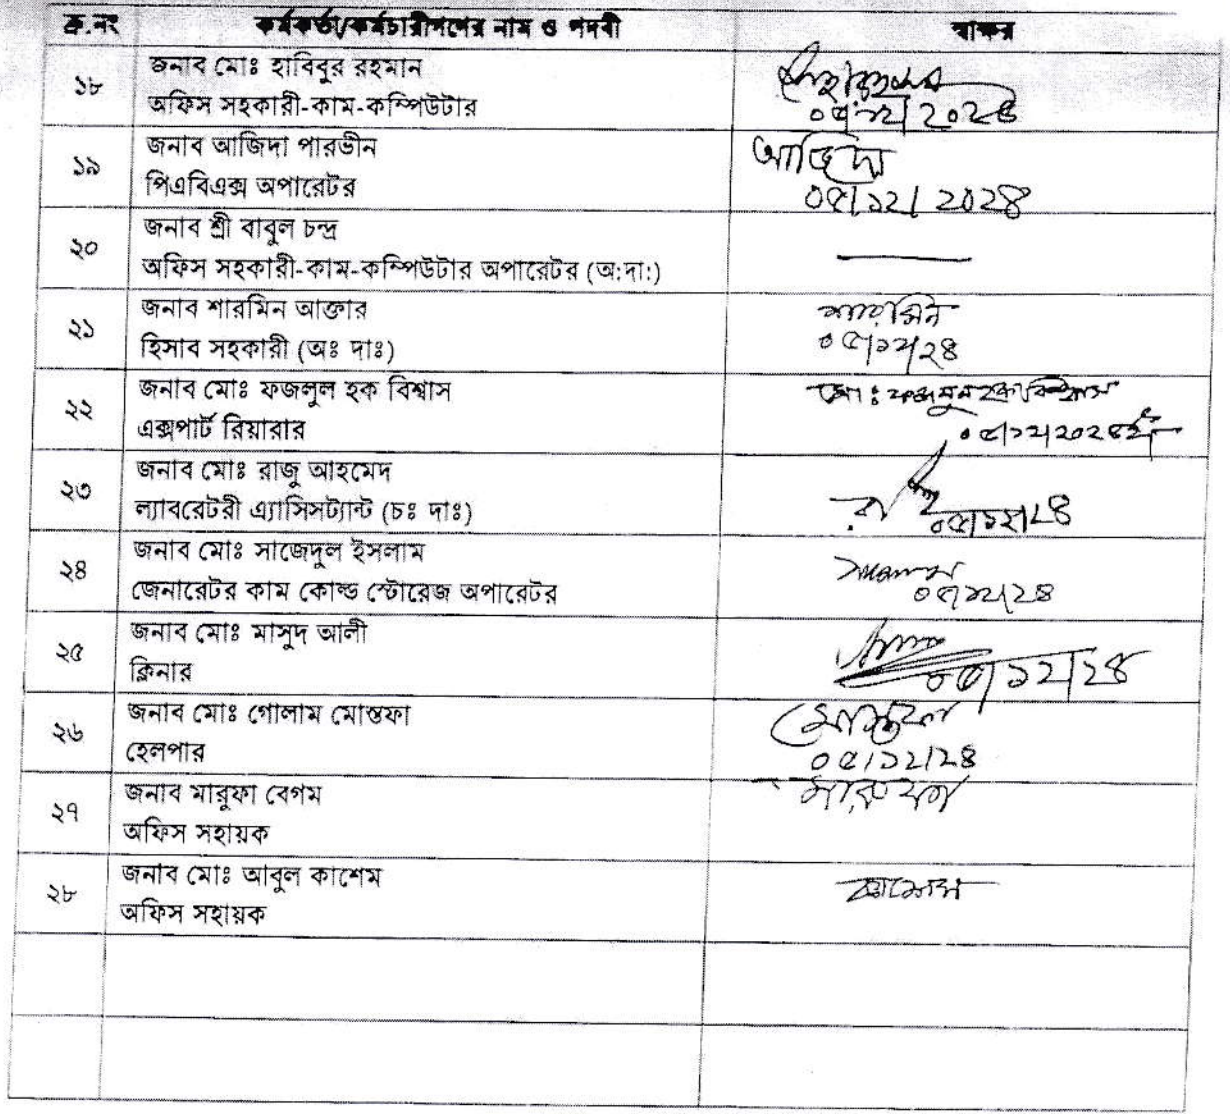 ক্র.নং কর্মকর্তা/কর্মচারীগণের নাম ও পদবী স্বাক্ষর
১৮ জনাব মোঃ হাবিবুর রহমান
অফিস সহকারী-কাম-কম্পিউটার
০৫/১২/২০২৪
১৯ জনাব আজিদা পারভীন আজিদা
পিএবিএক্স অপারেটর ০৫/১২/২০২৪
২০ জনাব শ্রী বাবুল চন্দ্র
অফিস সহকারী-কাম-কম্পিউটার অপারেটর (অ:দা:)
২১ জনাব শারমিন আক্তার শারমিন
হিসাব সহকারী (অঃ দাঃ) ০৫/১২/২৪
২২ জনাব মোঃ ফজলুল হক বিশ্বাস মো: ফজলুল হক বিশ্বাস
এক্সপার্ট রিয়ারার ০৫/১২/২০২৪ইং
২৩ জনাব মোঃ রাজু আহমেদ
ল্যাবরেটরী এ্যাসিসট্যান্ট (চঃ দাঃ) ০৫/১২/২৪
২৪ জনাব মোঃ সাজেদুল ইসলাম
জেনারেটর কাম কোল্ড স্টোরেজ অপারেটর ০৫/১২/২৪
২৫ জনাব মোঃ মাসুদ আলী
ক্লিনার ০৫/১২/২৪
২৬ জনাব মোঃ গোলাম মোস্তফা মোস্তফা
হেলপার ০৫/১২/২৪
২৭ জনাব মারুফা বেগম মারুফা
অফিস সহায়ক
২৮ জনাব মোঃ আবুল কাশেম কাশেম
অফিস সহায়ক